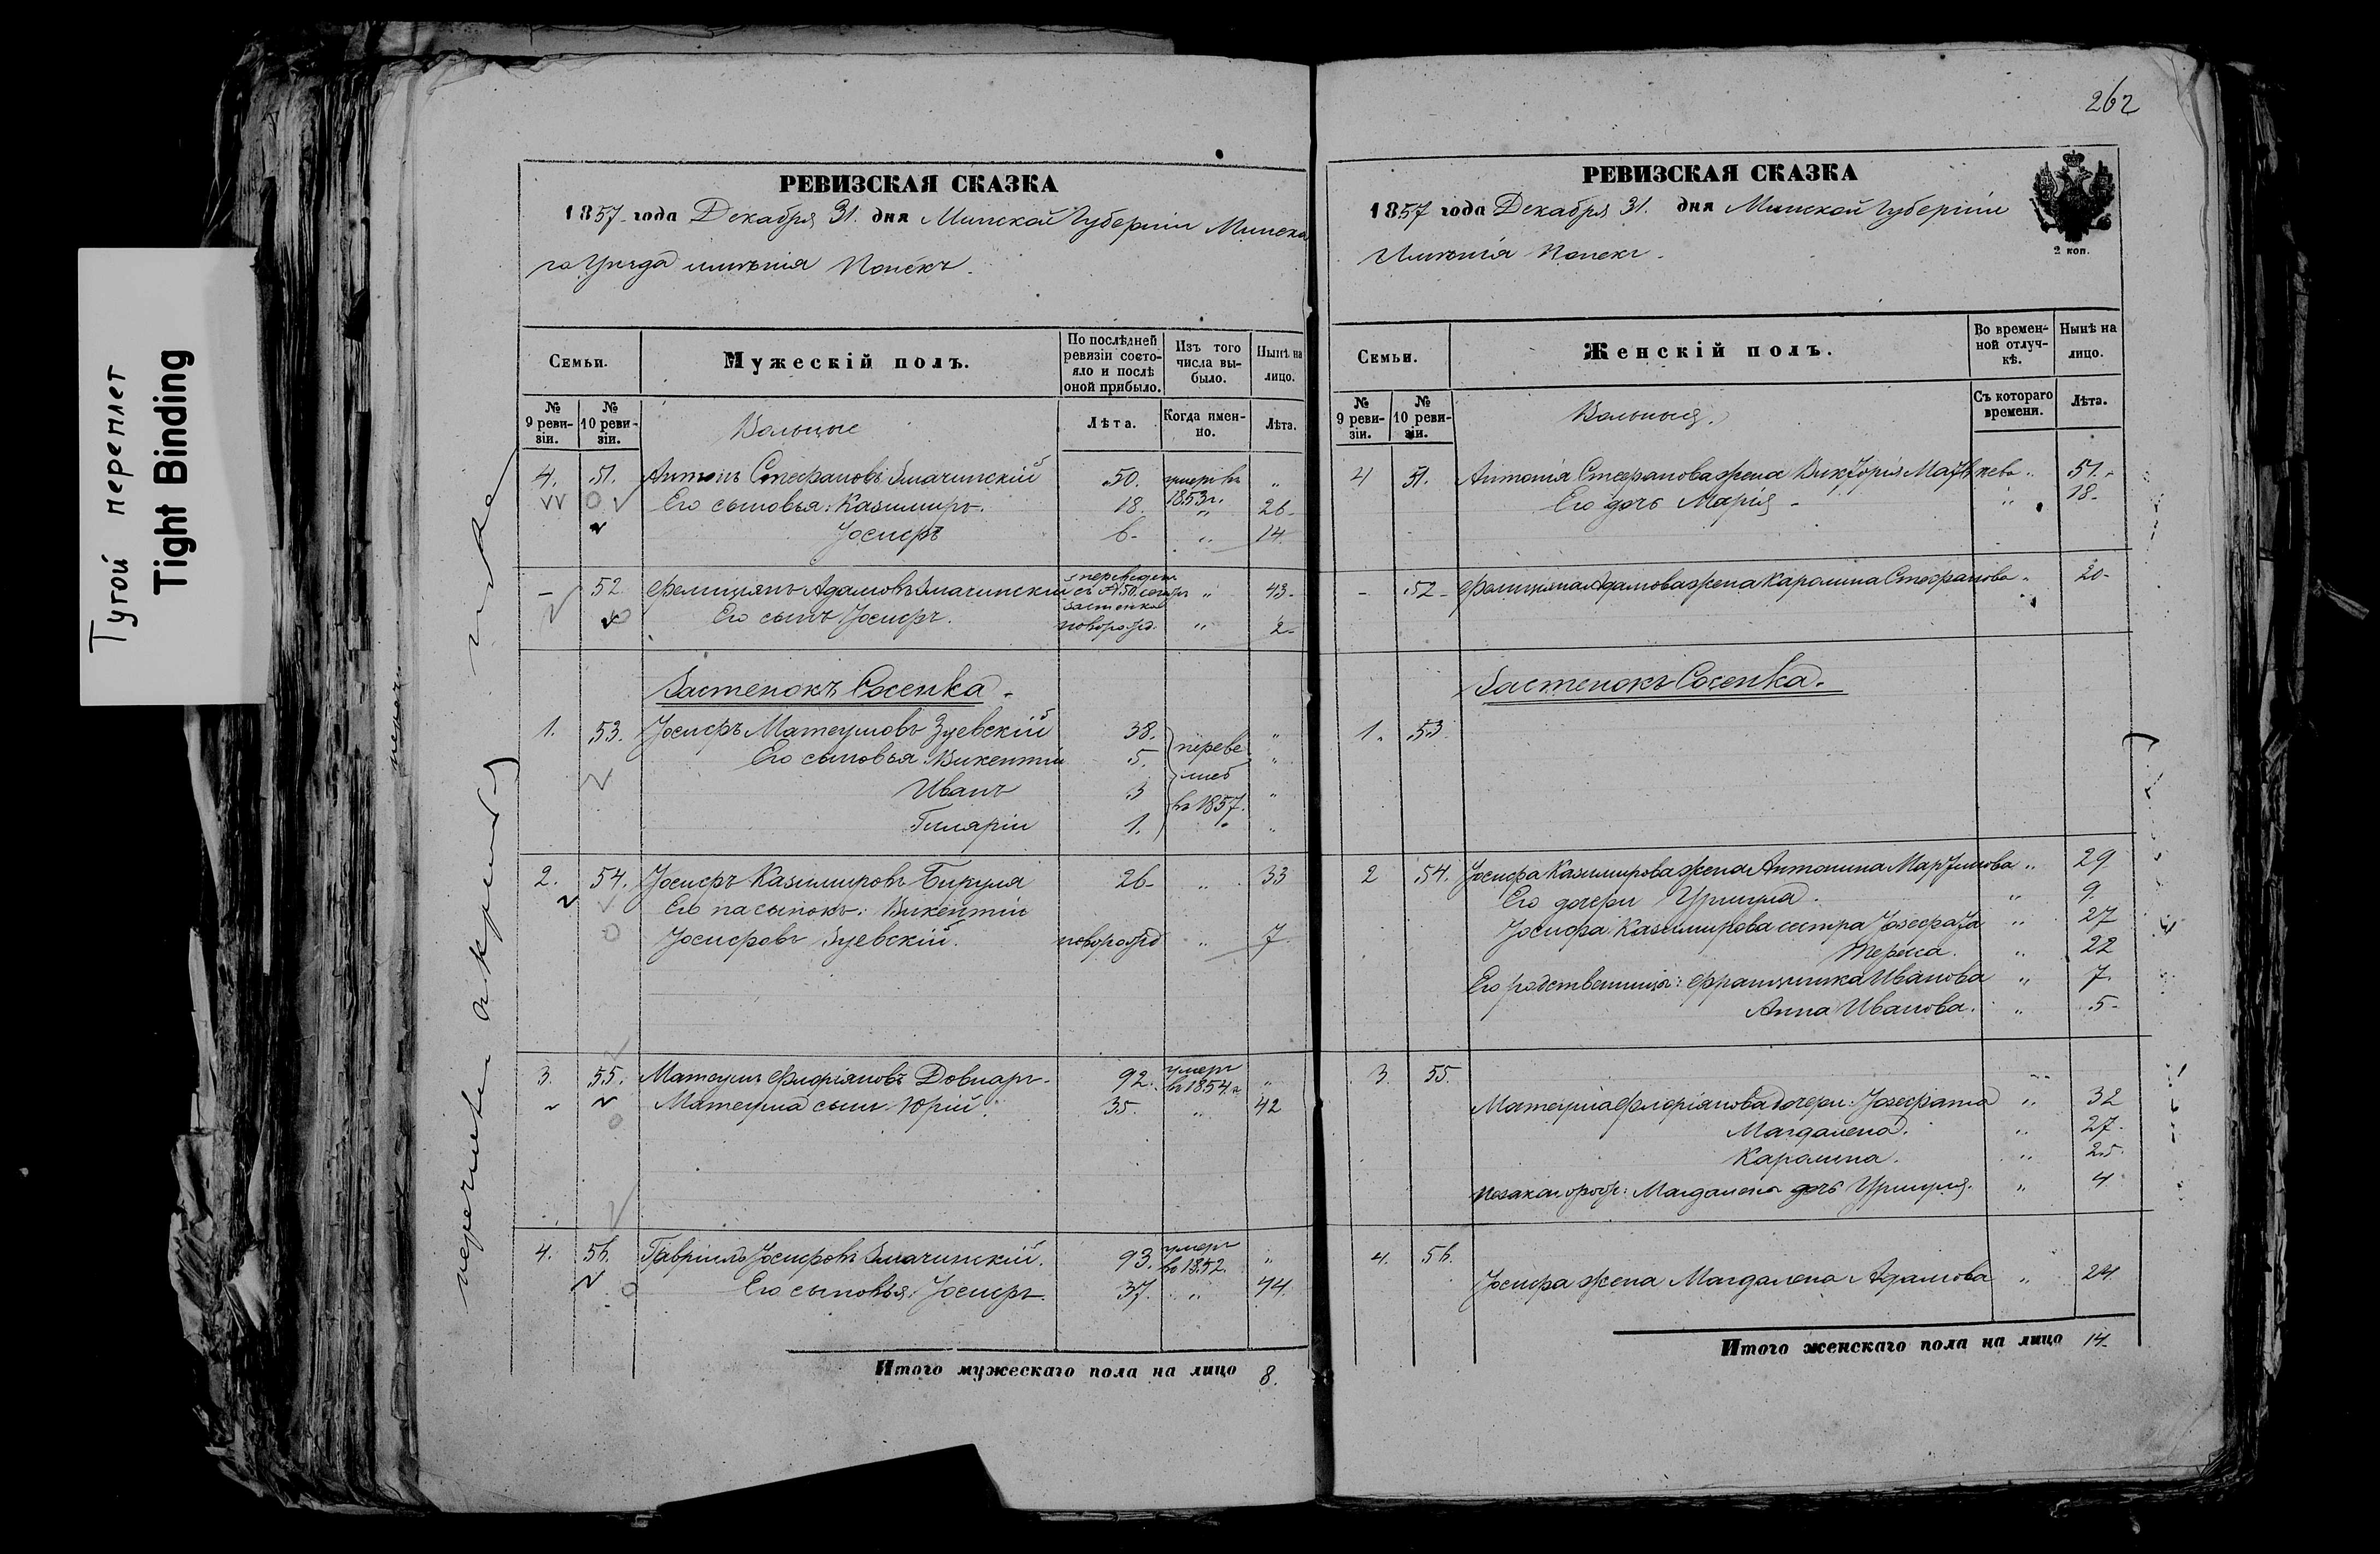 Тугой переплет
Tight Binding
РЕВИЗСКАЯ СКАЗКА
1857 года Декабря 31. дня Минской Губерніи Минска
го Уѣзда имѣнія
Семьи.
Мужескій полъ.
По послѣдней ревизіи состояло и послѣ оной прибыло.
Изъ того числа выбыло.
Нынѣ на лицо.
№ 9 ревизіи.
№ 10 ревизіи.
Вольные
Лѣта.
Когда именно.
Лѣта.
4. 51. Антонъ Стефановъ 50. умеръ въ 1853 г. "
Его сыновья: Казимиръ. 18. " 26-
Іосифъ 6- " 14
- 52 Фелиціянъ Адамовъ переведен съ № 50 застенка " 43-
Его сынъ Іосифъ. новорожд. " 2-
Застенокъ Сосенка.
1. 53. Іосифъ Матеушовъ Зуевскій 38. "
Его сыновья: Викентій 5. переве "
Иванъ 3 въ 1857. "
Гиляріи 1. "
2. 54. Іосифъ Казимировъ Бируля 26- " 33
Его пасынокъ: Викентій
Іосифовъ Зуевскій. новорожд " 7
3. 55. Матеушъ Флоріяновъ Довнаръ. 92. умеръ въ 1854 г. "
Матеуша сынъ Юрій. 35. " 42
4. 56. Гавріилъ Іосифовъ 93. умеръ въ 1852. "
Его сыновья: Іосифъ. 37. " 44.
Итого мужескаго пола на лицо 8.
262
РЕВИЗСКАЯ СКАЗКА
1857 года Декабря 31. дня Минской Губерніи
Имѣнія
2 коп.
Семьи.
Женскій полъ.
Во временной отлучкѣ.
Нынѣ на лицо.
№ 9 ревизіи.
№ 10 ревизіи.
Вольныя.
Съ котораго времени.
Лѣта.
4 51. Антонія Стефанова жена Викторія " 51.
Его дочь Марія - " 18.
- 52- Фелиціяна Адамова жена Каролина Стефанова " 20-
Застенокъ Сосенка.
1. 53.
2 54. Іосифа Казимирова жена Антонина Мартинова " 29
Его дочери Уршуля. " 9.
Іосифа Казимирова сестра " 27
Тереса. " 22
Его родственницы: Францишка Иванова " 7.
Анна Иванова. " 5-
3. 55.
Матеуша Флоріянова дочери: Іозефата " 32
Магдалена. " 27.
Каролина. " 25.
Магдалены дочь Уршуля. " 4
4. 56.
Іосифа жена Магдалена Адамова " 24
Итого женскаго пола на лицо 14.